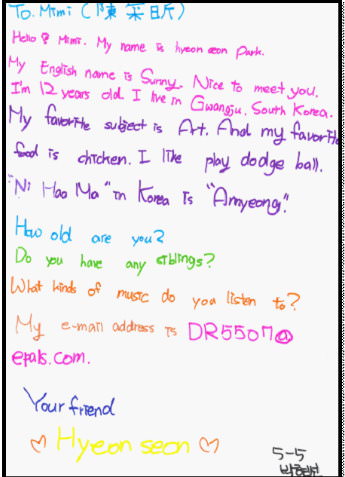 To. Mimi (陳采昕)
Hello? Mimi. My name is hyeon seon Park.
My English name is Sunny. Nice to meet you.
I'm 12 years old. I live in Gwangju, South Korea.
My favorite subject is Art. And my favorite
food is chicken. I like play dodge ball.
"Ni Hao Ma" in Korea is "Annyeong".
How old are you?
Do you have any siblings?
What kinds of music do you listen to?
My e-mail address is DR5507@
epals.com.
Your friend
Hyeon seon
5-5
박현선